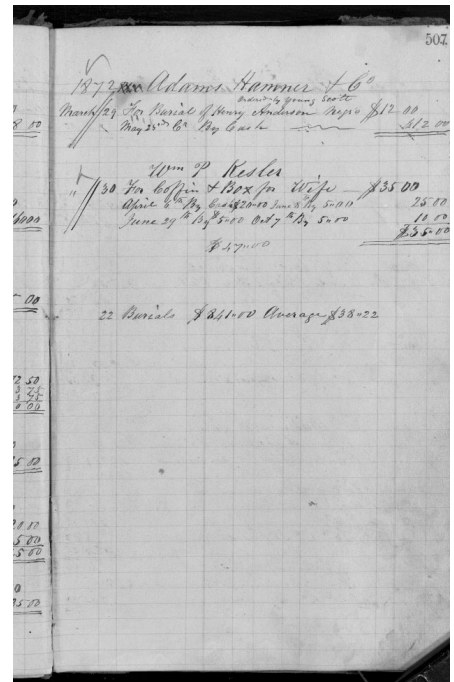 507
1872 Adams Hamner & Co
Order by Young Scott
March 29 For Burial of Henry Anderson Negro $12 00
May 25th Cr By Cash $12 00
Wm P. Kesler
" 30 For Coffin & Box for Wife $35 00
April 6th By Cash $20=00 June 8th By 5=00 25 00
June 29th By $5=00 Oct 7th By 5=00 10 00
$35=00
$47=00
22 Burials $841=00 Average $38=22
8 00
00
72 50
3 75
3 75
0 00
5 00
20 00
5 00
5 00
0
35 00